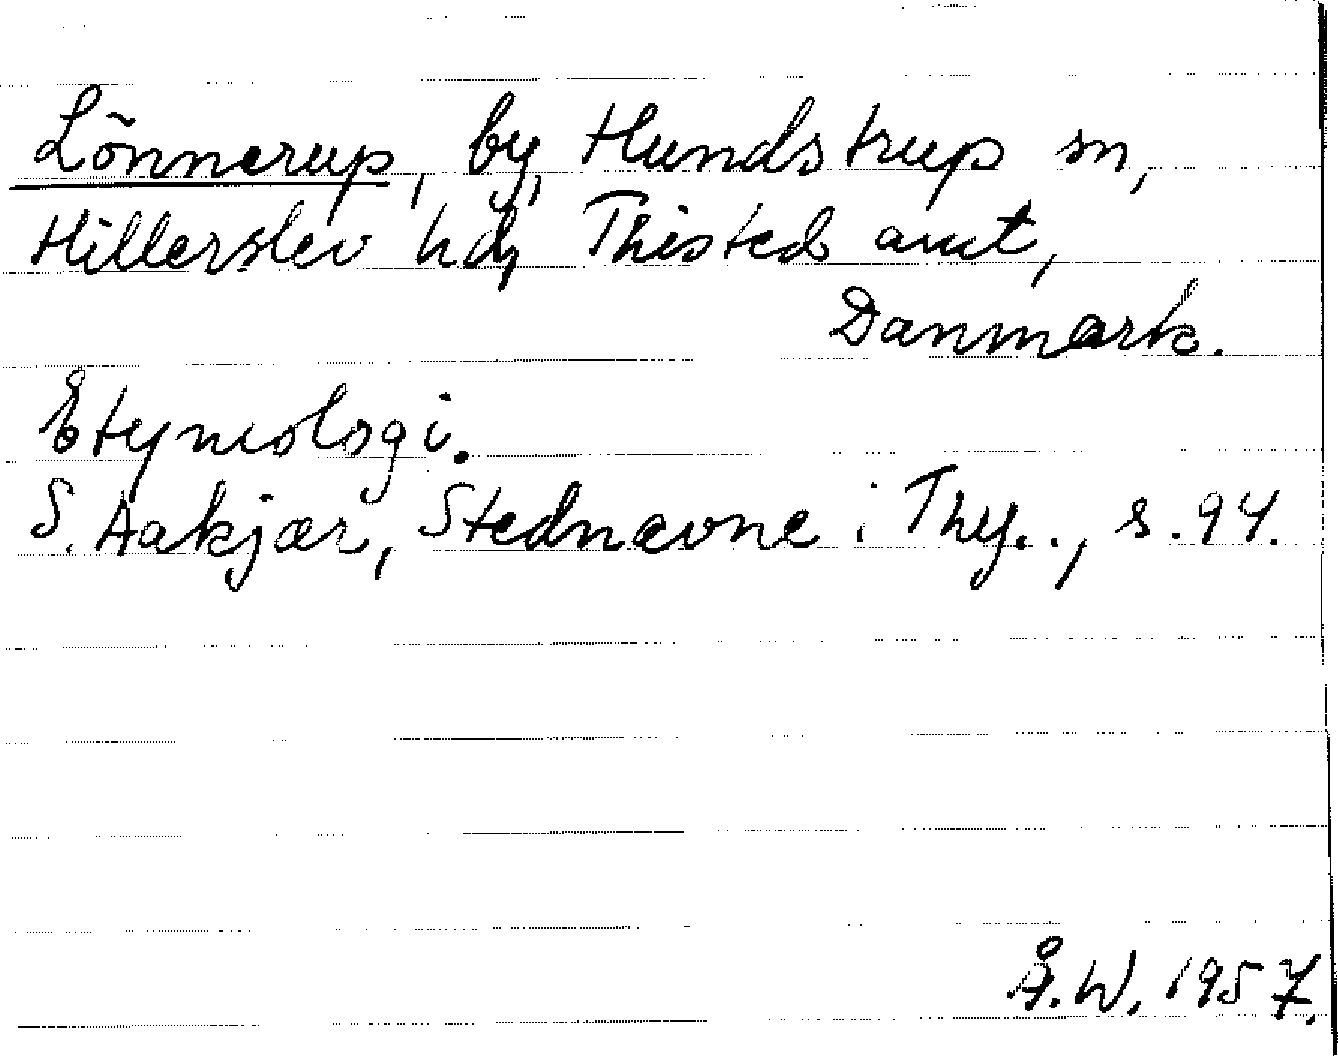 Lönnerup, by, Hundstrup sn,
Hillerslev hd, Thisted amt,
Danmark.
Etymologi.
S. Aakjær, Stednavne i Thy.., s. 94.
Å.W. 1957.